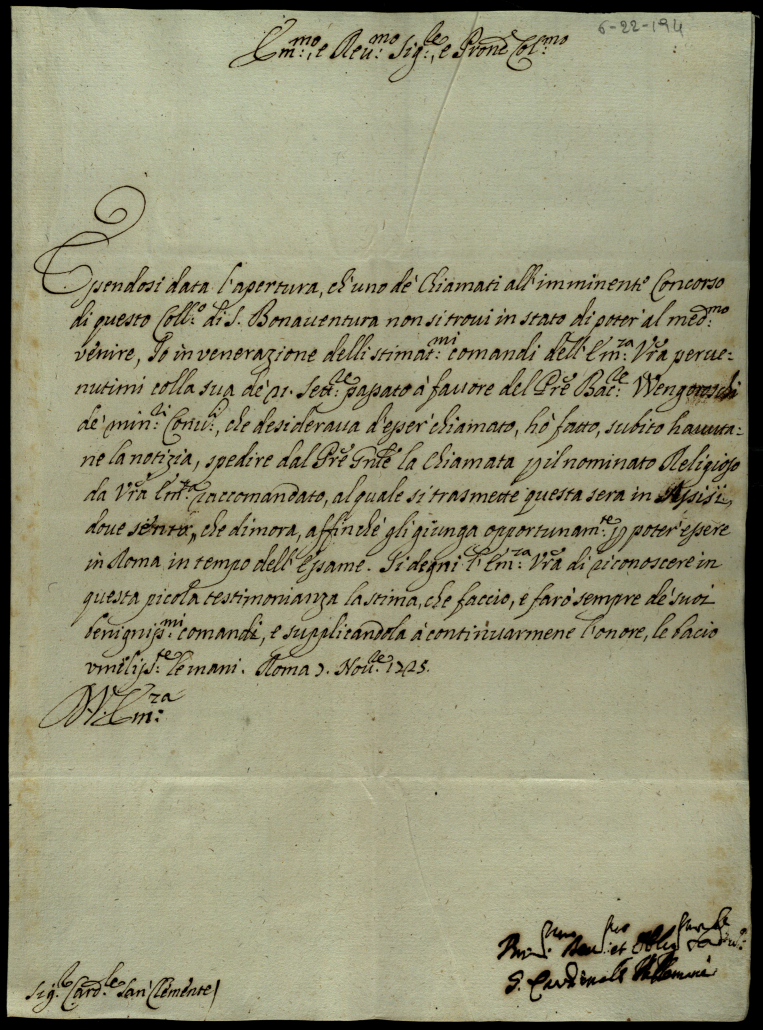 6-22-194
Em:mo, e Reu:mo Sig:re, e Prone Col:mo
Essendosi data l'apertura, ch'uno de' Chiamati all'imminente Concorso
di questo Coll:o di S. Bonauentura non si troui in stato di poter' al med:mo
venire, Io in venerazione delli stimat:mi comandi dell'Em:za Vra perue-
nutimi colla sua de' 21. Sett:re passato à fauore del Pre Bac:re
de' min:ri Conu:li, che desideraua d'esser' chiamato, hò fatto, subito hauuta-
ne la notizia, spedire dal Pre Gnle la Chiamata p il nominato Religioso
da Vra Em:za raccomandato, al quale si trasmette questa sera in Assisi,
doue sento, che dimora, affinchè gli giunga opportunam:te p poter' essere
in Roma in tempo dell'Essame. Si degni l'Em:za Vra di riconoscere in
questa picola testimonianza la stima, che faccio, e farò sempre de' suoi
benigniss:mi comandi, e supplicandola à continuarmene l'onore, le bacio
vmiliss:te le mani. Roma 7. Nou:re 1725.
V. Em:za
et
S. Cardinale
Sig:r Card:le San Clemente